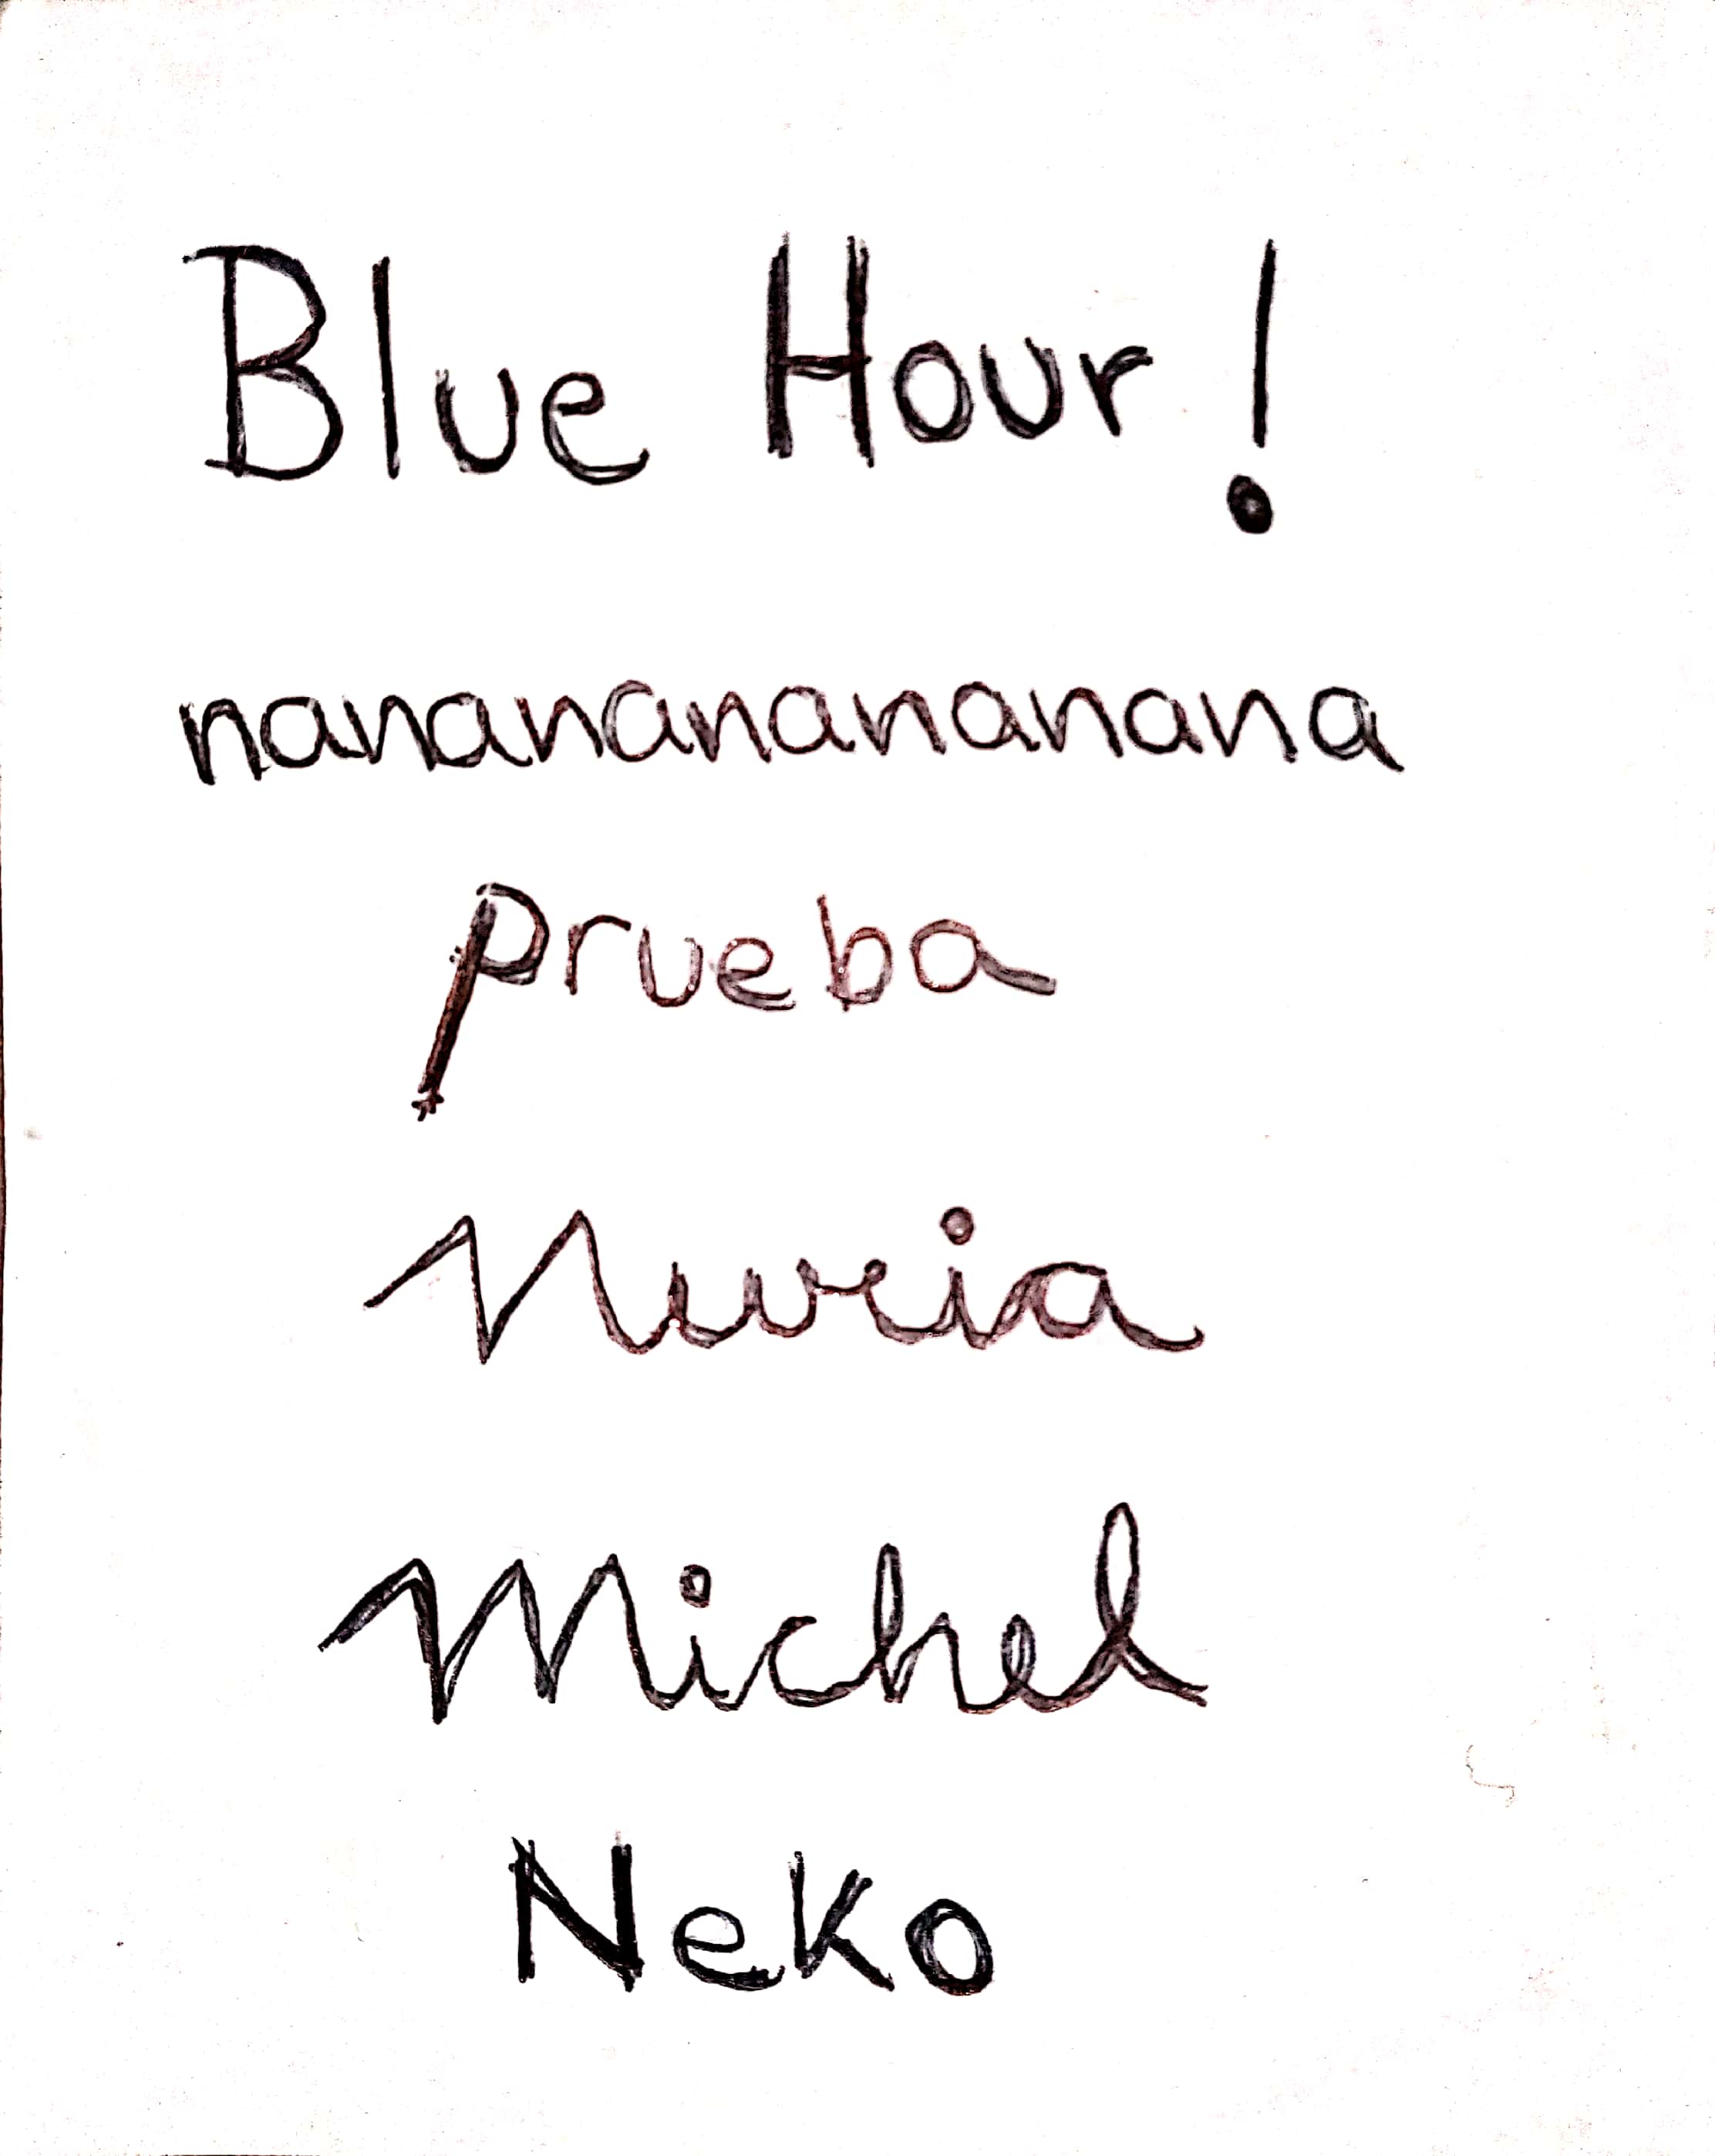 Blue Hour!
nananananananana
prueba
Nuria
Michel
Neko